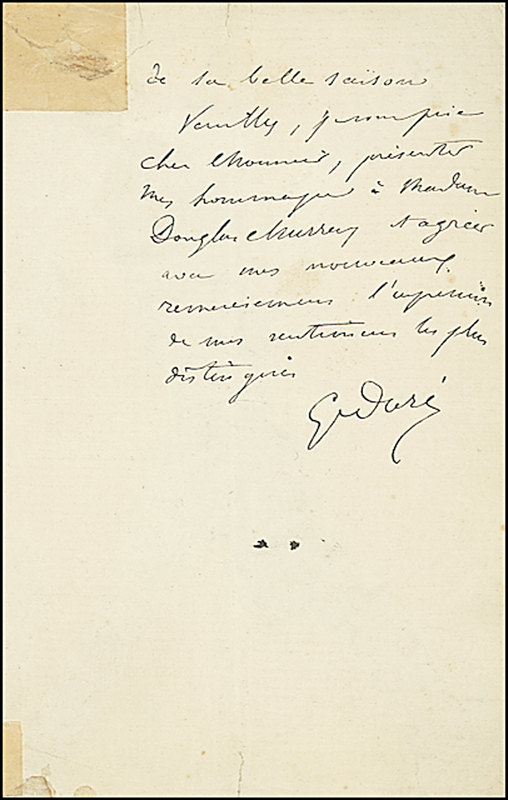 de la belle saison
Veuillez, je vous prie
cher Monsieur, présenter
mes hommages à Madame
Douglas Murray et agréer
avec mes nouveaux
remerciemens l'expression
de mes sentimens les plus
distingués
G Doré